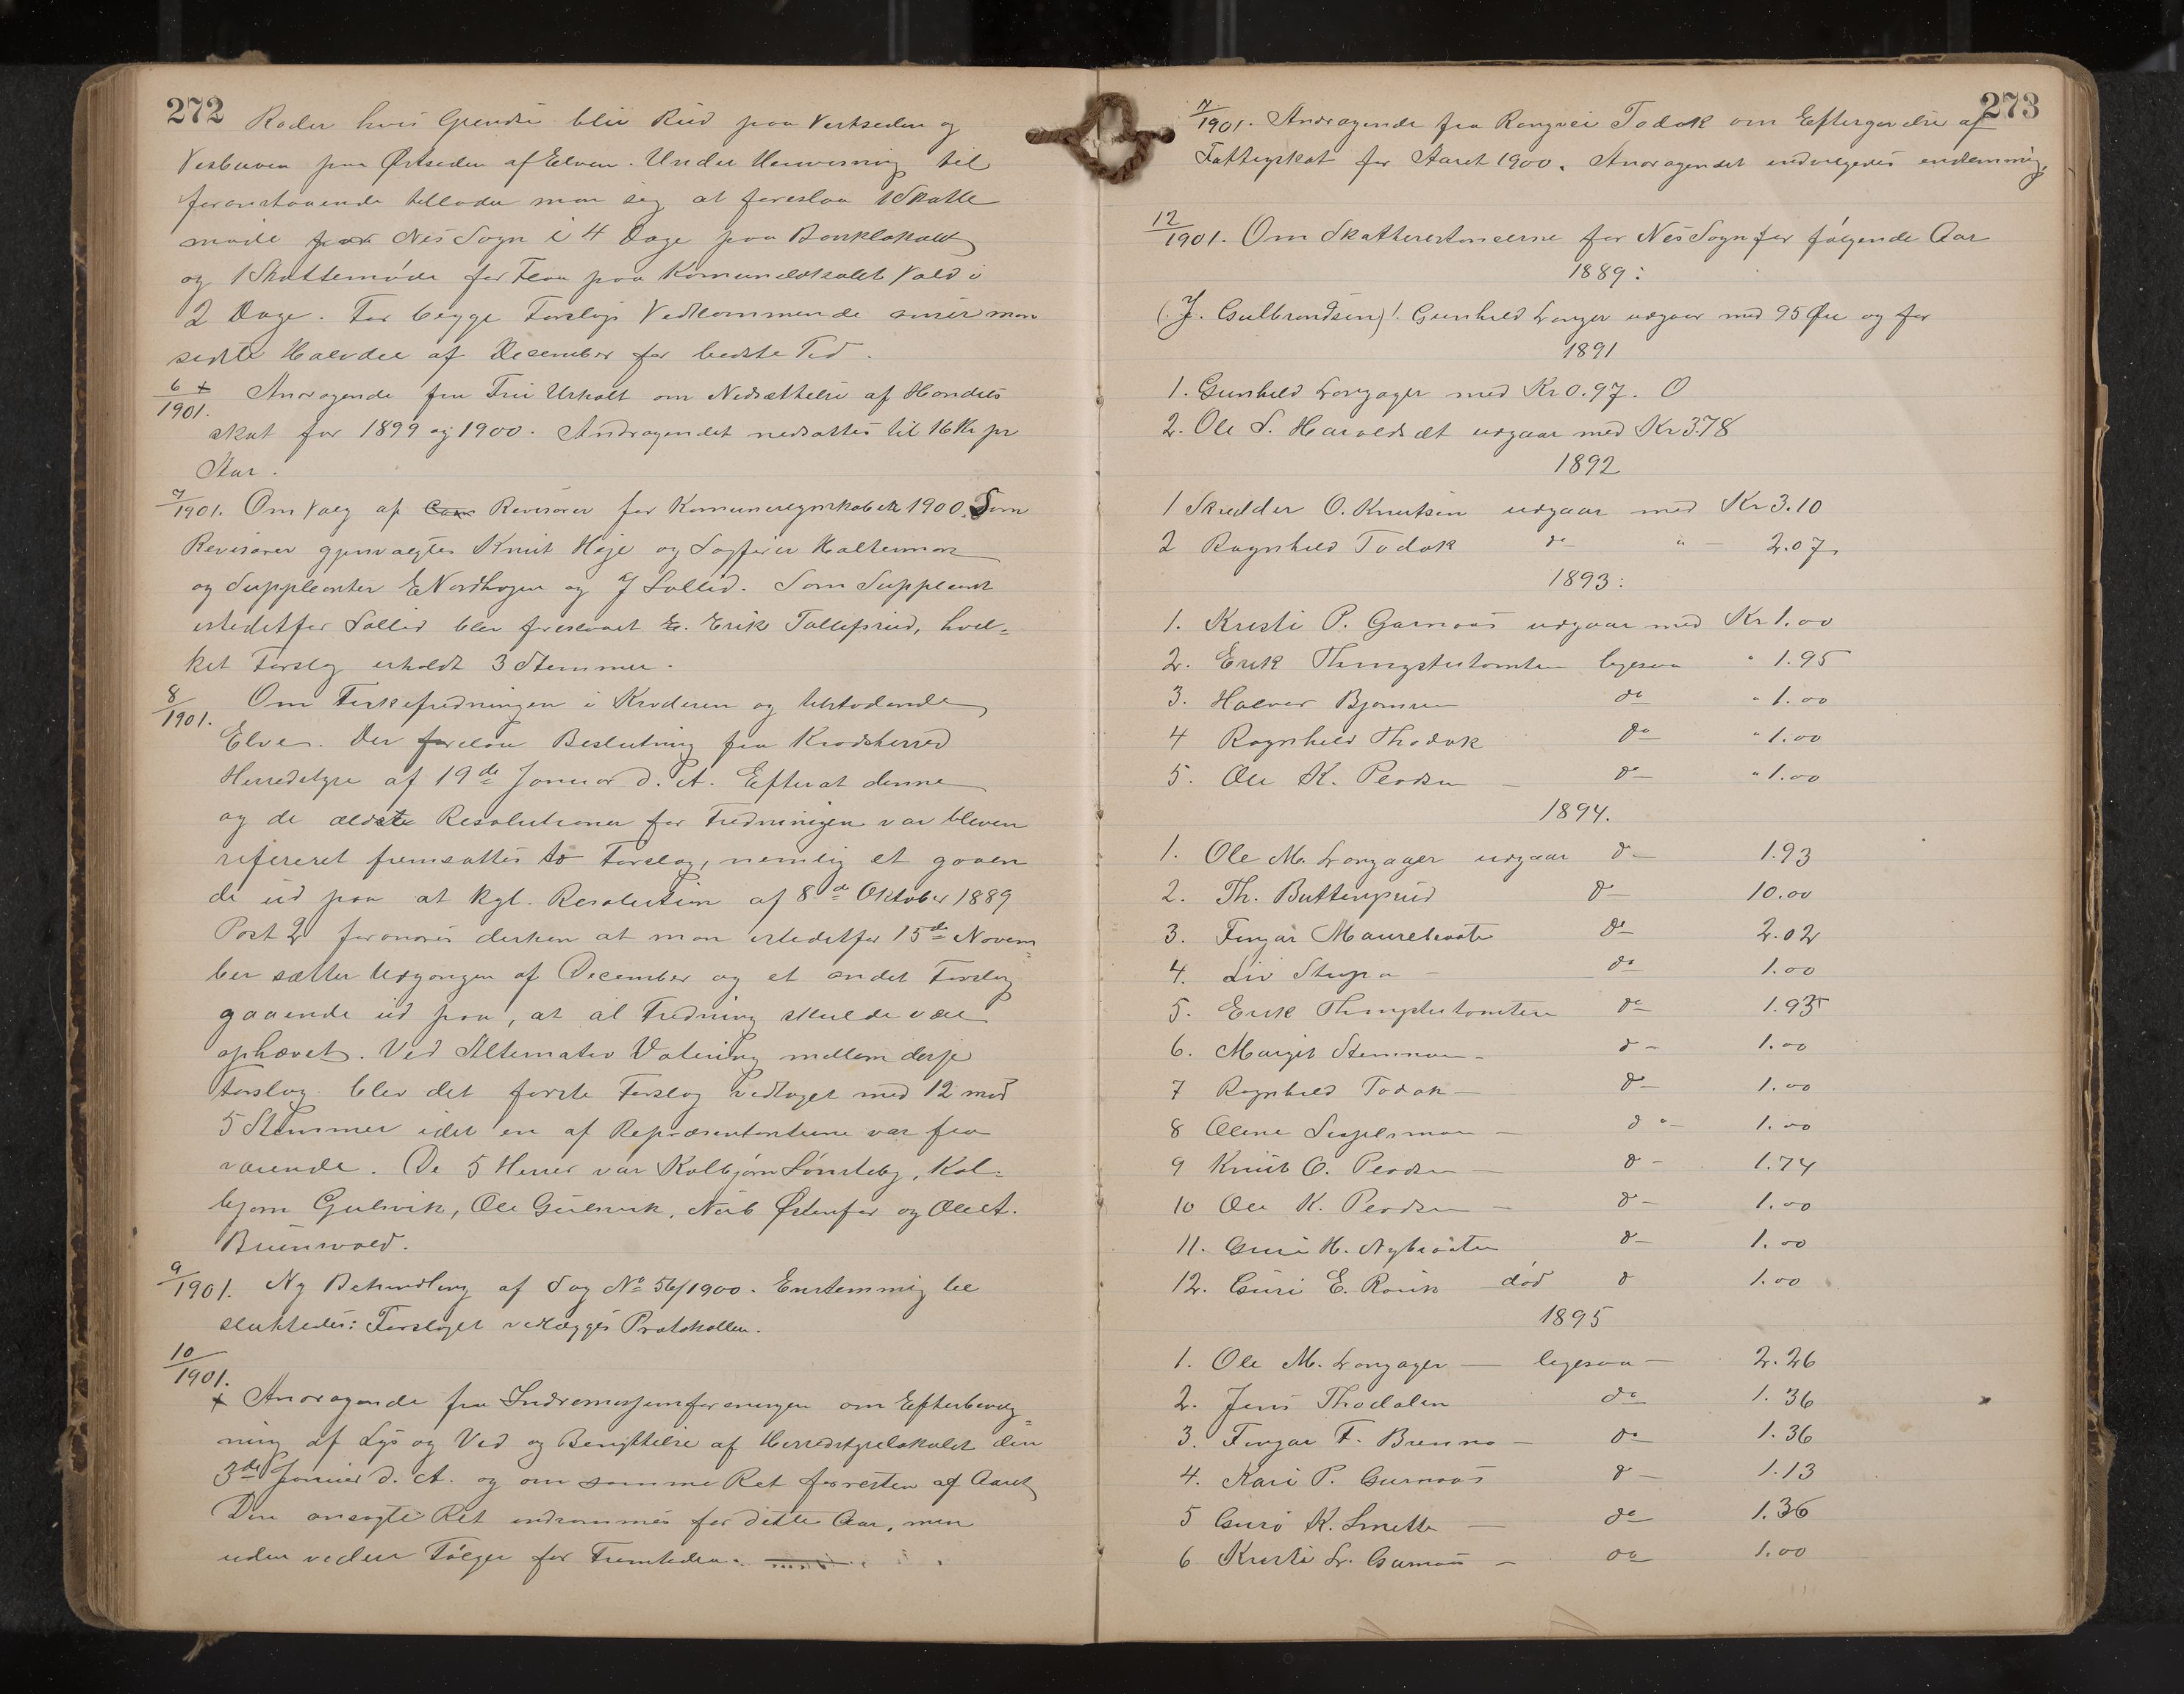 272
Roder hvis Grendse blir Rud paa Vestsiden og
Vesbraaten paa Østsiden af Elven. Under Henvisning til
foranstaaende tillader man sig at foreslaa 1 Skatte
møde for Nes Sogn i 4 Dage paa Banklokalet
og 1 Skattemøde for Flaa paa Komunelokalet Vold i
2 Dage. For begge Forslags Vedkommende anser man
sidste Halvdel af December for bedste Tid.
6/1901. + Andragende fra Fru Urholt om Nedsættelse af Handels
skat for 1899 og 1900. Andragendet nedsattes til 16 Kr pr
Aar.
7/1901. Om Valg af Revisorer for Komuneregnskabet 1900. Som
Revisorer gjenvalgtes Knut Høje og Sagfører Halteman
og Suppleanter E Nordhagen og J Sollid. Som Suppleant
istedetfor Sollid blev foreslaaet E. Erik Tollefsrud, hvil-
ket Forslag erholdt 3 Stemmer.
8/1901. Om Fiskefredningen i Krøderen og tilstødende
Elve. Der forelaa Beslutning fra Krødsherred
Herredstyre af 19de Januar d. A. Efterat denne
og de ældste Resolutioner for Fredningen var bleven
refereret fremsattes to Forslag, nemlig et gaaen
de ud paa at kgl. Resolution af 8de Oktober 1889
Post 2 forandres derhen at man istedetfor 15de Novem=
ber sætter Udgangen af December og et andet Forslag
gaaende ud paa, at al Fredning skulde være
ophævet. Ved Alternativ Votering mellem disse
Forslag blev det første Forslag vedtaget med 12 mod
5 Stemmer idet en af Repræsentanterne var fra
værende. De 5 Herrer var Kolbjørn Lønsteby, Kol-
bjørn Gulsvik, Ole Gulsvik, Nub Østenfor og Ole A.
Bruenvold.
9/1901. Ny Behandling af Sag No 56/1900. Enstemmig be
sluttedes: Forslaget vedlægges Protokollen.
10/1901.
+ Andragende fra Indremissionsforeningen om Efterbevilg=
ning af Lys og Ved og Benyttelse af Herredstyrelokalet den
3de Januar d. A. og om samme Ret forresten af Aaret
Den ansøgte Ret indrømmes for dette Aar, men
uden videre Følger for Fremtiden.
273
7/1901. Andragende fra Rangvei Todok om Eftergivelse af
Fattigskat for Aaret 1900. Andragendet indvilgedes enstemmig.
12/1901. Om Skatterestancerne for Nes Sogn for følgende Aar
1889:
(J. Gulbrandsen) 1. Gunhild Langer udgaar med 95 Øre og for
1891
1. Gunhild Langager med Kr 0.97. O
2. Ole S. Haraldsæt udgaar med Kr 3.78
1892
1 Skredder O. Knutsen udgaar med Kr 3.10
2 Ragnhild Todok do " — 2.07
1893:
1. Kristi P. Garnaas udgaar med Kr 1.00
2. Erik Thingstutomten ligesaa " 1.95
3. Halvor Bjørnsen do " 1.00
4 Ragnhild Thodok do " 1.00
5. Ole K. Perdsen — do " 1.00
1894.
1. Ole M. Langager udgaar do 1.93
2. Th. Buttingsrud do 10.00
3. Fingar Maurebraate do 2.02
4. Liv Stupa — do 1.00
5. Erik Thingstutomten do 1.95
6. Margit Stennaas — do 1.00
7 Ragnhild Todok — do 1.00
8 Olene — do 1.00
9 Knut O. Perdsen — do 1.74
10 Ole K. Perdsen — do 1.00
11. Guri H. Nybraaten do 1.00
12. Guri E. Roen død do 1.00
1895
1. Ole M. Langager — ligesaa — 2.26
2. Jens Thodalen do 1.36
3. Fingar F. Brenno — do 1.36
4. Kari P. Garnaas do 1.13
5 Guro K. Smette — do 1.36
6 Kristi L. Garnaas — do 1.00